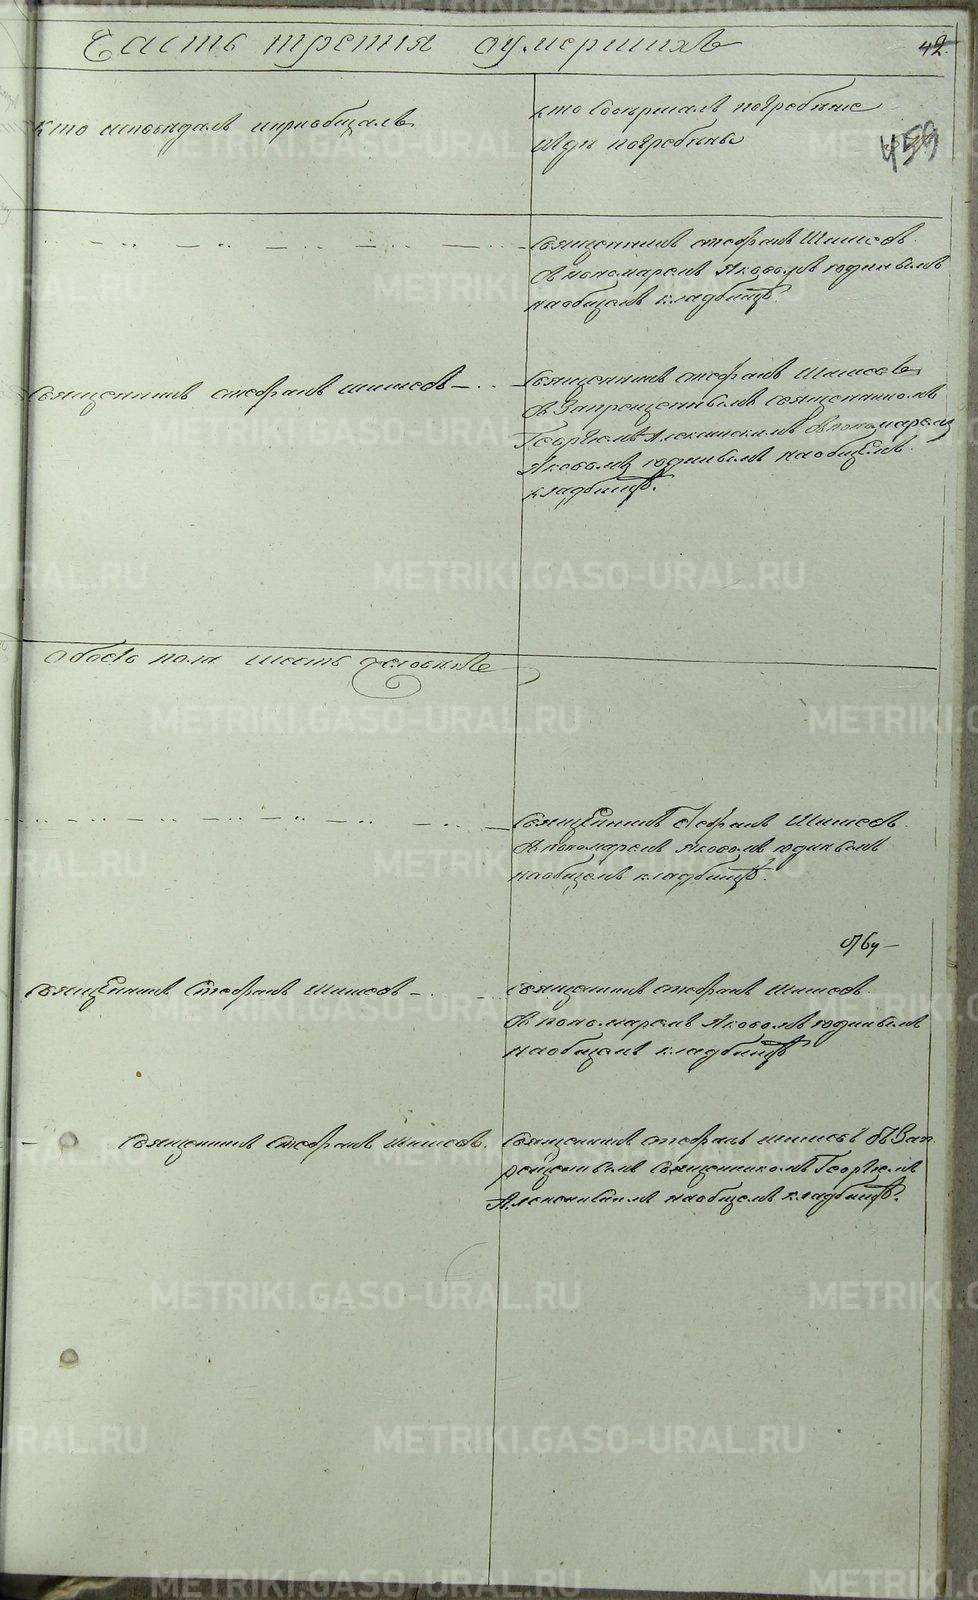 Часть третия оумершихъ
42
кто исповѣдалъ и приобщалъ
кто Совершалъ погребение
и гдѣ погребены
459
Священникъ Стефанъ Шишевъ
съ пономаремъ Яковомъ Юдинымъ
на общемъ кладбищѣ.
Священникъ Стефанъ Шишевъ
Священникъ Стефанъ Шишевъ
съ Запрещеннымъ священникомъ
Георгіемъ съ пономаремъ
Яковомъ Юдинымъ на общемъ
кладбищѣ.
Обоего пола шесть человѣкъ
Священникъ Стефанъ Шишевъ
съ пономаремъ Яковомъ Юдинымъ
на общемъ кладбищѣ.
Священникъ Стефанъ Шишевъ
Священникъ Стефанъ Шишевъ
съ пономаремъ Яковомъ Юдинымъ
на общемъ кладбищѣ
Священникъ Стефанъ Шишевъ.
Священникъ Стефанъ Шишевъ съ Зап
рещеннымъ Священникомъ Георгіемъ
на общемъ кладбищѣ.
METRIKI.GASO-URAL.RU